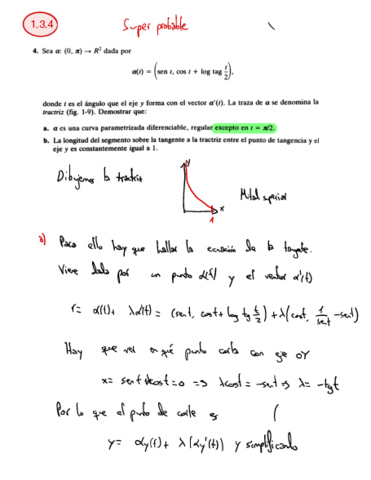 1.3.4
Super probable
4. Sea α: (0, π) → R² dada por
α(t) = (sen t, cos t + log tag t/2),
donde t es el ángulo que el eje y forma con el vector α'(t). La traza de α se denomina la
tractriz (fig. 1-9). Demostrar que:
a. α es una curva parametrizada diferenciable, regular excepto en t = π/2.
b. La longitud del segmento sobre la tangente a la tractriz entre el punto de tangencia y el
eje y es constantemente igual a 1.
Dibujemos la tractriz
y
x
1
Mitad superior
a) Para ello hay que hallar la ecuación de la tangente.
Viene dada por un punto α(t) y el vector α'(t)
r = α(t) + λα'(t) = (sent, cost + log tg (t/2)) + λ(cost, 1/sent - sent)
Hay que ver en qué punto corta con eje OY
x = sent + λcost = 0 => λcost = -sent => λ = -tgt
Por lo que el punto de corte es (
y = αy(t) + λ(αy'(t)) y simplificando